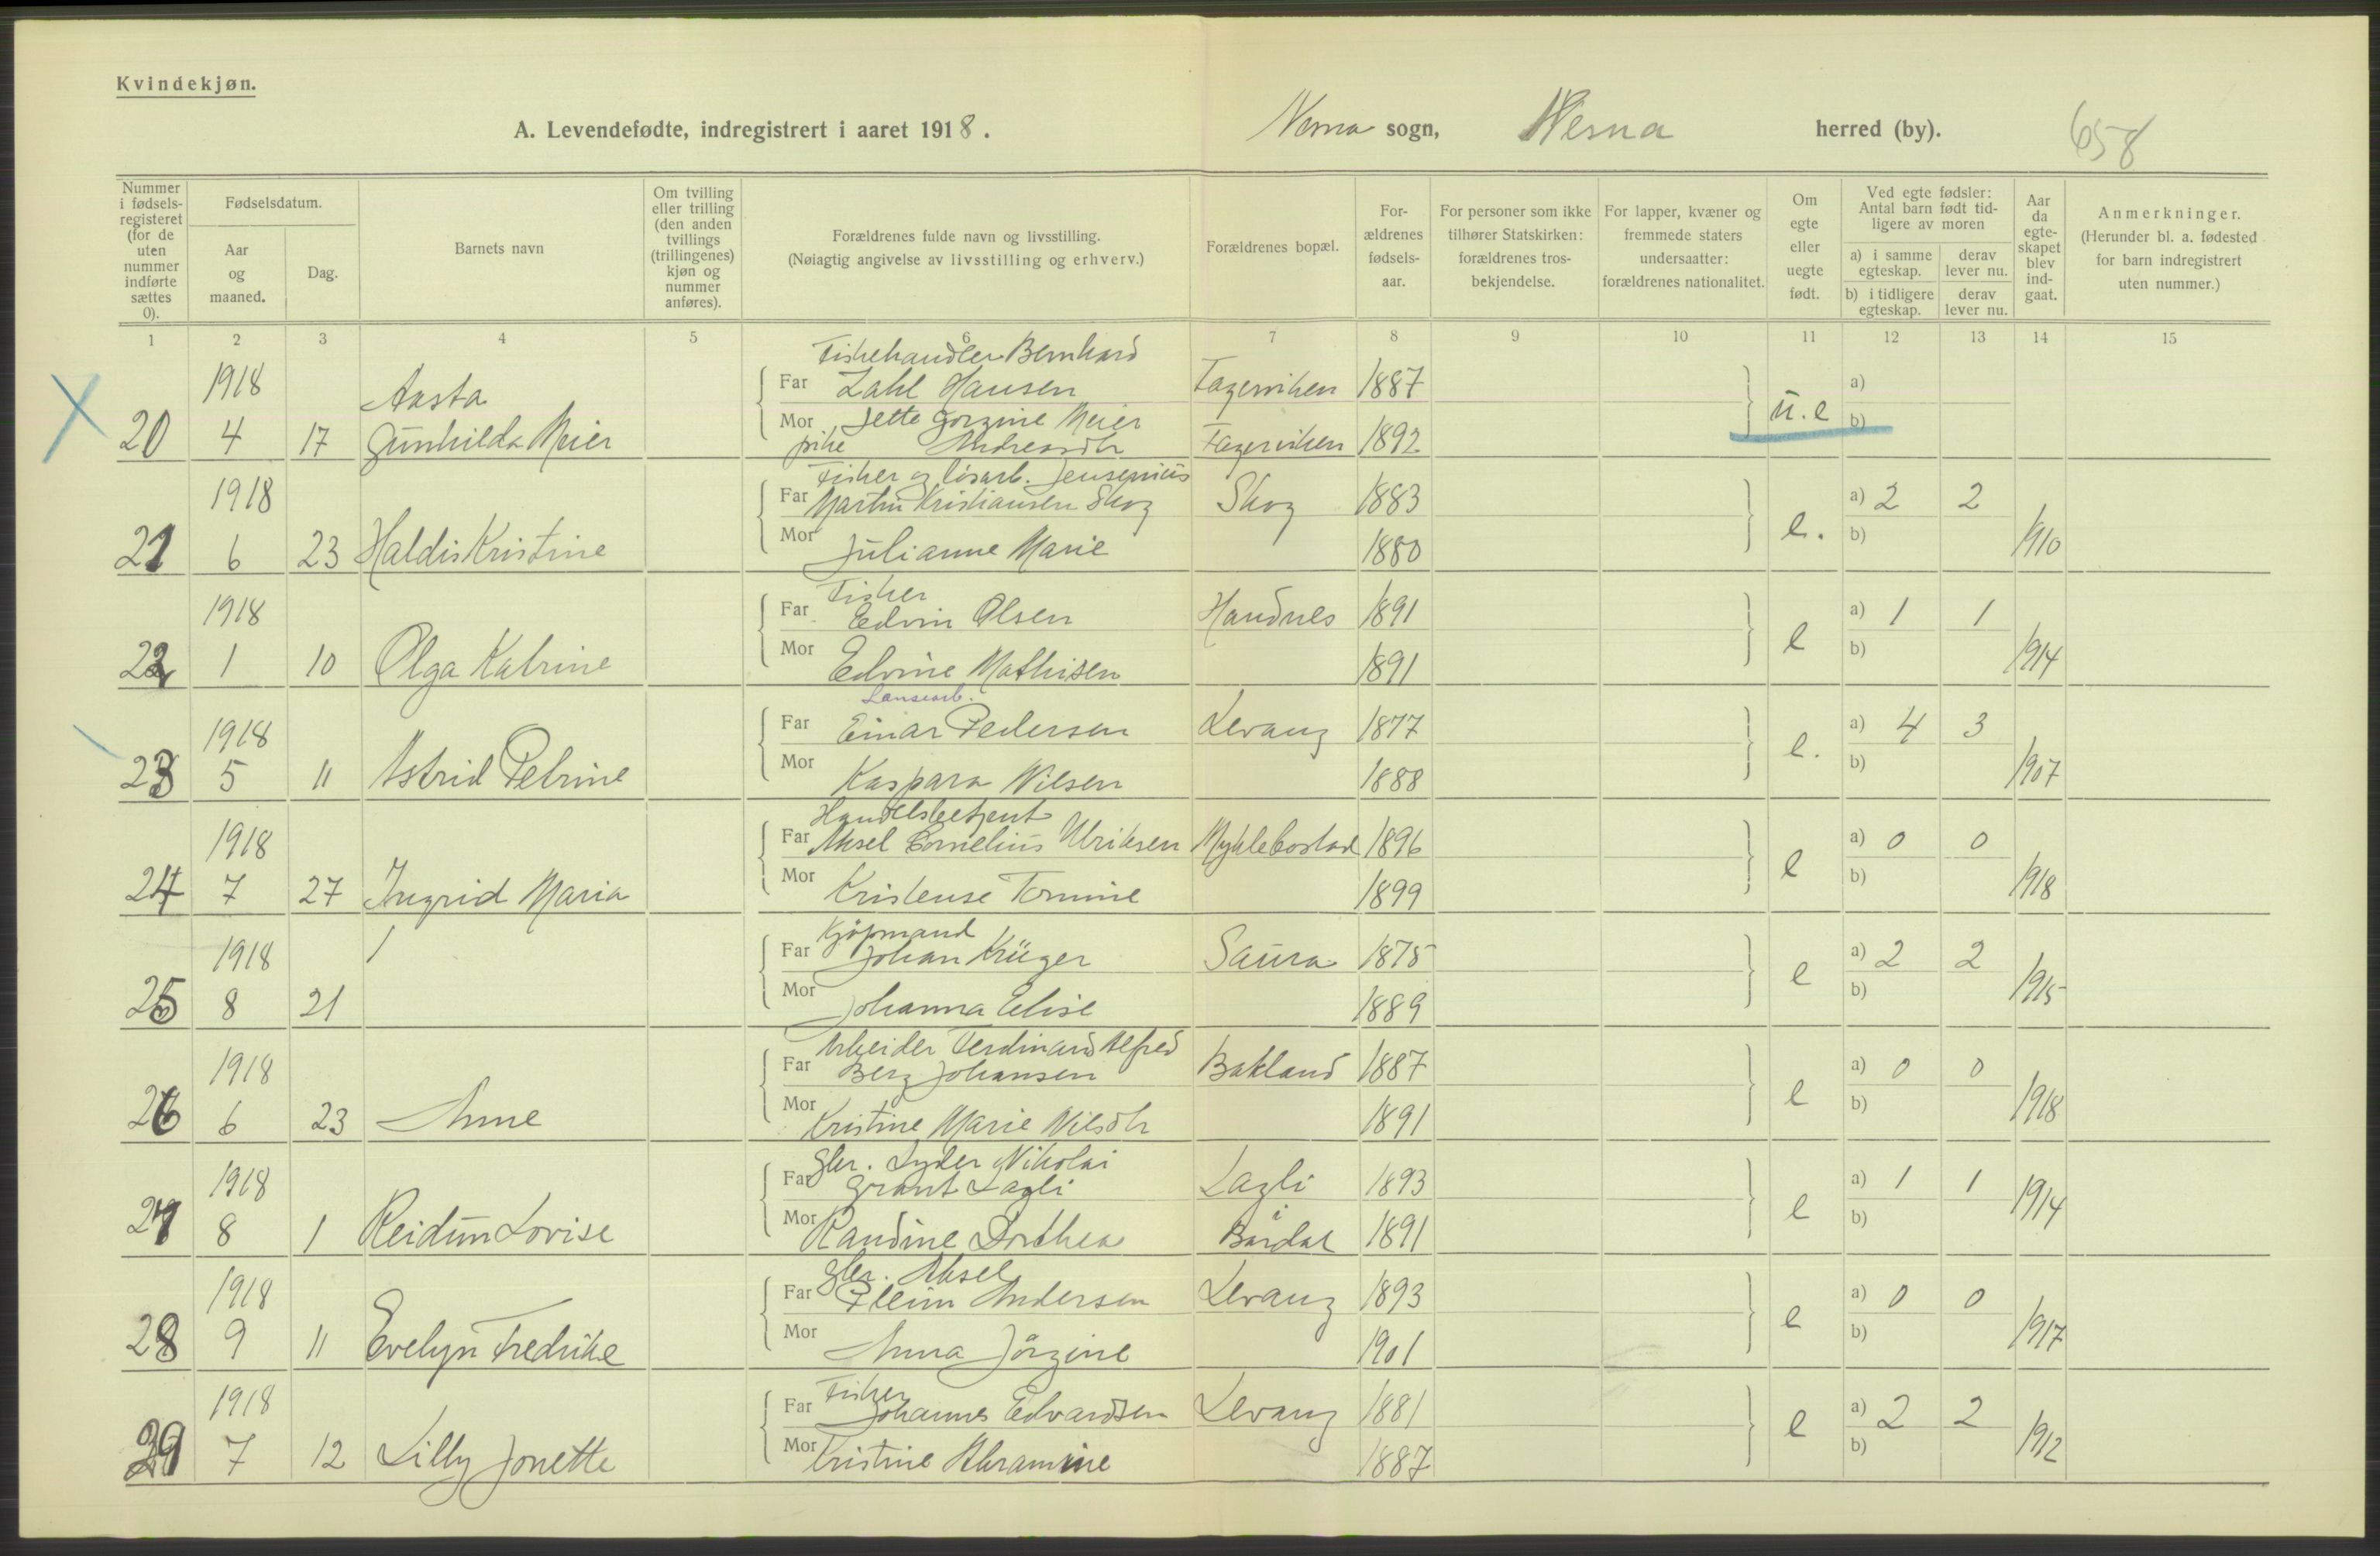 Kvindekjøn.
A. Levendefødte, indregistrert i aaret 1918. Nesna sogn, Nesna herred (by). 658
Nummer i fødsels-registeret (for de uten nummer indførte sættes 0).
Fødselsdatum.
Aar og maaned.
Dag.
Barnets navn
Om tvilling eller trilling (den anden tvillings (trillingenes) kjøn og nummer anføres).
Forældrenes fulde navn og livsstilling.
(Nøiagtig angivelse av livsstilling og erhverv.)
Forældrenes bopæl.
For-ældrenes fødsels-aar.
For personer som ikke tilhører Statskirken: forældrenes tros-bekjendelse.
For lapper, kvæner og fremmede staters undersaatter: forældrenes nationalitet.
Om egte eller uegte født.
Ved egte fødsler: Antal barn født tid-ligere av moren
a) i samme egteskap.
derav lever nu.
b) i tidligere egteskap.
derav lever nu.
Aar da egte-skapet blev ind-gaat.
Anmerkninger.
(Herunder bl. a. fødested for barn indregistrert uten nummer.)
1 2 3 4 5 6 7 8 9 10 11 12 13 14 15
Fiskehandler Bernhard
1918 Aasta Far Zahl Hansen Fagerviken 1887 a)
20 4 17 Gunhilda Meier Mor Jette Jorgine Meier u.e b)
pike Andreasdtr Fagerviken 1892
Fisker og løsarb. Jensenius
1918 Far Martin Kristiansen Skog Skog 1883 a) 2 2
21 6 23 Haldis Kristine Mor Julianne Marie 1880 e. b) 1910
Fisker
1918 Far Edvin Olsen Handnes 1891 a) 1 1
22 1 10 Olga Katrine Mor Edvine Mathisen 1891 e b) 1914
Lansearb.
1918 Far Einar Pedersen Levang 1877 a) 4 3
23 5 11 Astrid Petrine Mor Kaspara Nilsen 1888 e. b) 1907
Handelsbetjent
1918 Far Aksel Cornelius Ulriksen Myklebostad 1896 a) 0 0
24 7 27 Ingrid Maria Mor Kristense Tomine 1899 e b) 1918
Kjøpmand
1918 / Far Johan Krüger Saura 1875 a) 2 2
25 8 21 Mor Johanna Elise 1889 e b) 1915
Arbeider Ferdinand Alfred
1918 Far Berg Johansen Bakland 1887 a) 0 0
26 6 23 Anne Mor Kristine Marie Nilsdtr 1891 e b) 1918
gbr. Lyder Nikolai
1918 Far Grant Lagli Lagli 1893 a) 1 1
27 8 1 Reidun Lovise Mor Randine Dorthea i Bardal 1891 e b) 1914
gbr. Aksel
1918 Far Pleim Andersen Levang 1893 a) 0 0
28 9 11 Evelyn Fredrike Mor Anna Jörgine 1901 e b) 1917
Fisker
1918 Far Johannes Edvardsen Levang 1881 a) 2 2
29 7 12 Lilly Jonette Mor Kristine Abramine 1887 e b) 1912